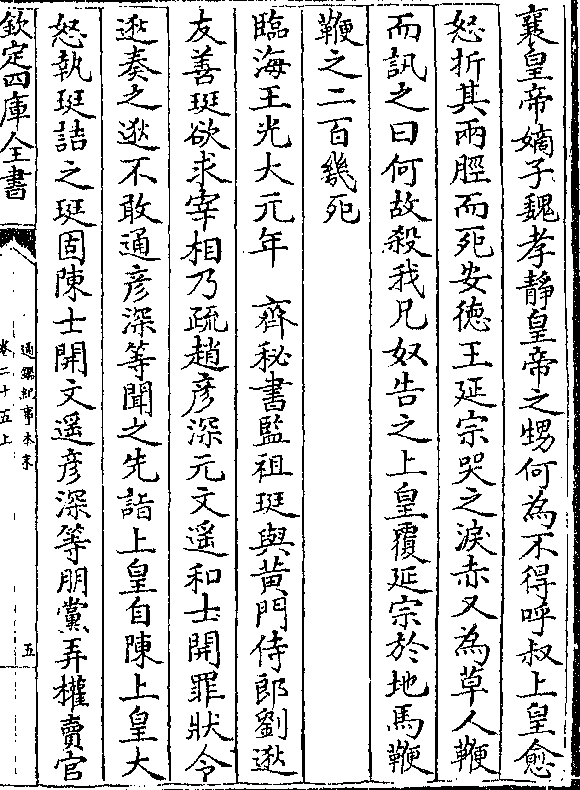 襄皇帝嫡子魏孝靜皇帝之甥何為不得呼叔上皇愈
怒折其兩脛而死安徳王延宗哭之淚赤又為草人鞭
而訊之曰何故殺我兄奴告之上皇覆延宗於地馬鞭
鞭之二百幾死
臨海王光大元年　齊秘書監祖珽與黃門侍郎劉逖
友善珽欲求宰相乃疏趙彦深元文遥和士開罪狀令
逖奏之逖不敢通彦深等聞之先詣上皇自陳上皇大
怒執珽詰之珽固陳士開文遥彦深等朋黨弄權賣官
欽定四庫全書
通鑑紀事本末
卷二十五上
五